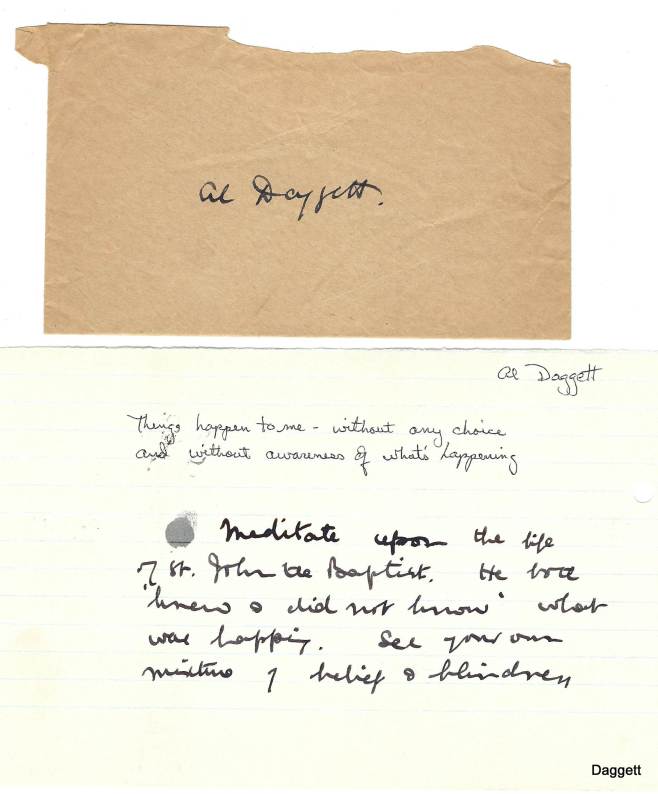 Al Daggett.
Al Daggett
Things happen to me - without any choice
and without awareness of what's happening
Meditate upon the life
of St. John the Baptist. He both
"knew & did not know" what
was happing. See your own
mixture of belief & blindness
Daggett